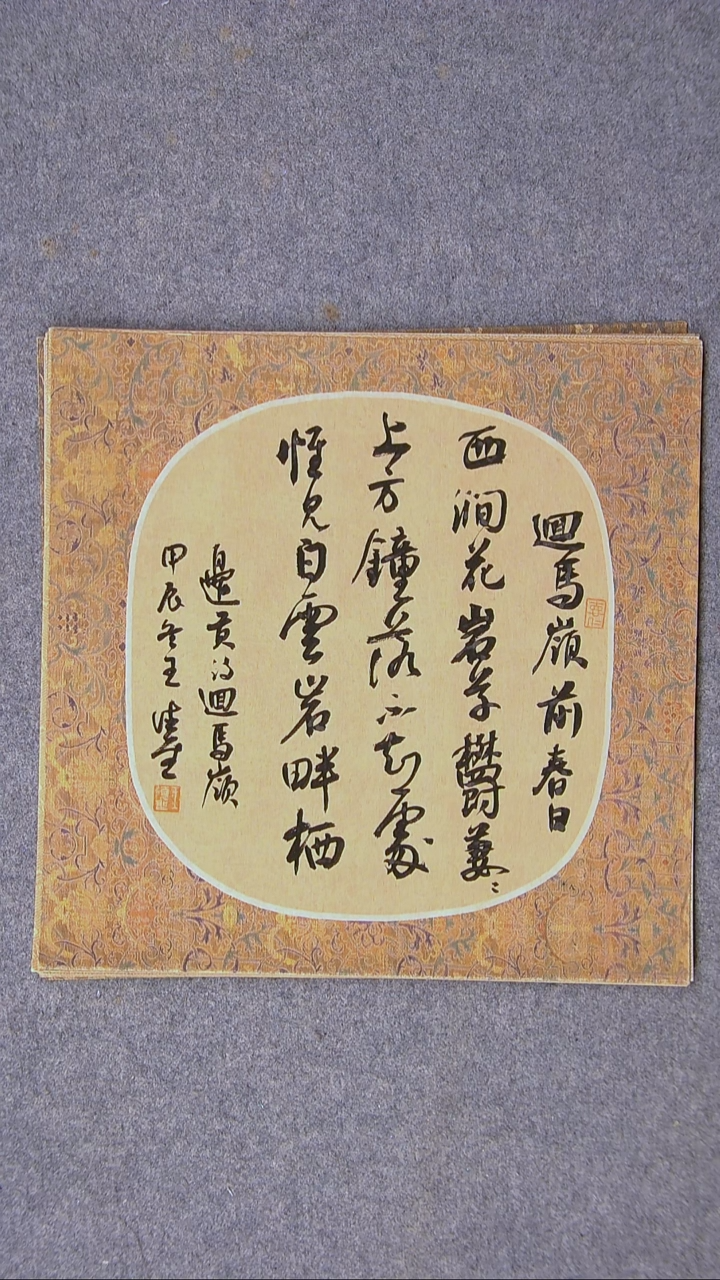 迴馬嶺前春日
西澗花岩草鬱萋〻
上方鐘落不知處
惟見白雲岩畔栖
邊貢詩迴馬嶺
甲辰冬王